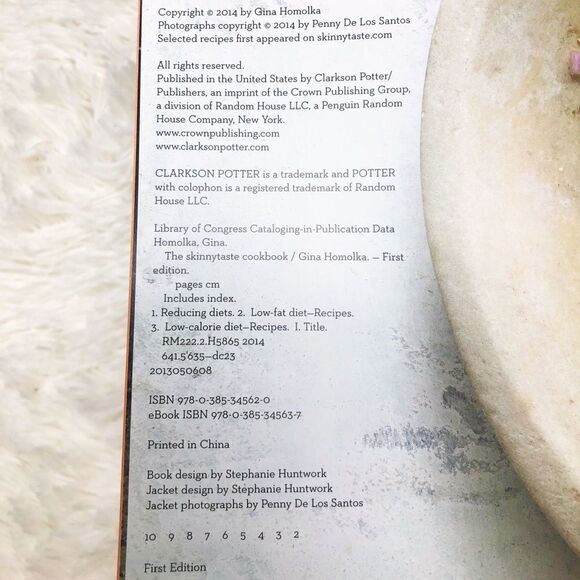 Copyright © 2014 by Gina Homolka
Photographs copyright © 2014 by Penny De Los Santos
Selected recipes first appeared on skinnytaste.com
All rights reserved.
Published in the United States by Clarkson Potter/
Publishers, an imprint of the Crown Publishing Group,
a division of Random House LLC, a Penguin Random
House Company, New York.
www.crownpublishing.com
www.clarksonpotter.com
CLARKSON POTTER is a trademark and POTTER
with colophon is a registered trademark of Random
House LLC.
Library of Congress Cataloging-in-Publication Data
Homolka, Gina.
The skinnytaste cookbook / Gina Homolka. — First
edition.
pages cm
Includes index.
1. Reducing diets. 2. Low-fat diet—Recipes.
3. Low-calorie diet—Recipes. I. Title.
RM222.2.H5865 2014
641.5'635—dc23
2013050608
ISBN 978-0-385-34562-0
eBook ISBN 978-0-385-34563-7
Printed in China
Book design by Stephanie Huntwork
Jacket design by Stephanie Huntwork
Jacket photographs by Penny De Los Santos
10 9 8 7 6 5 4 3 2
First Edition